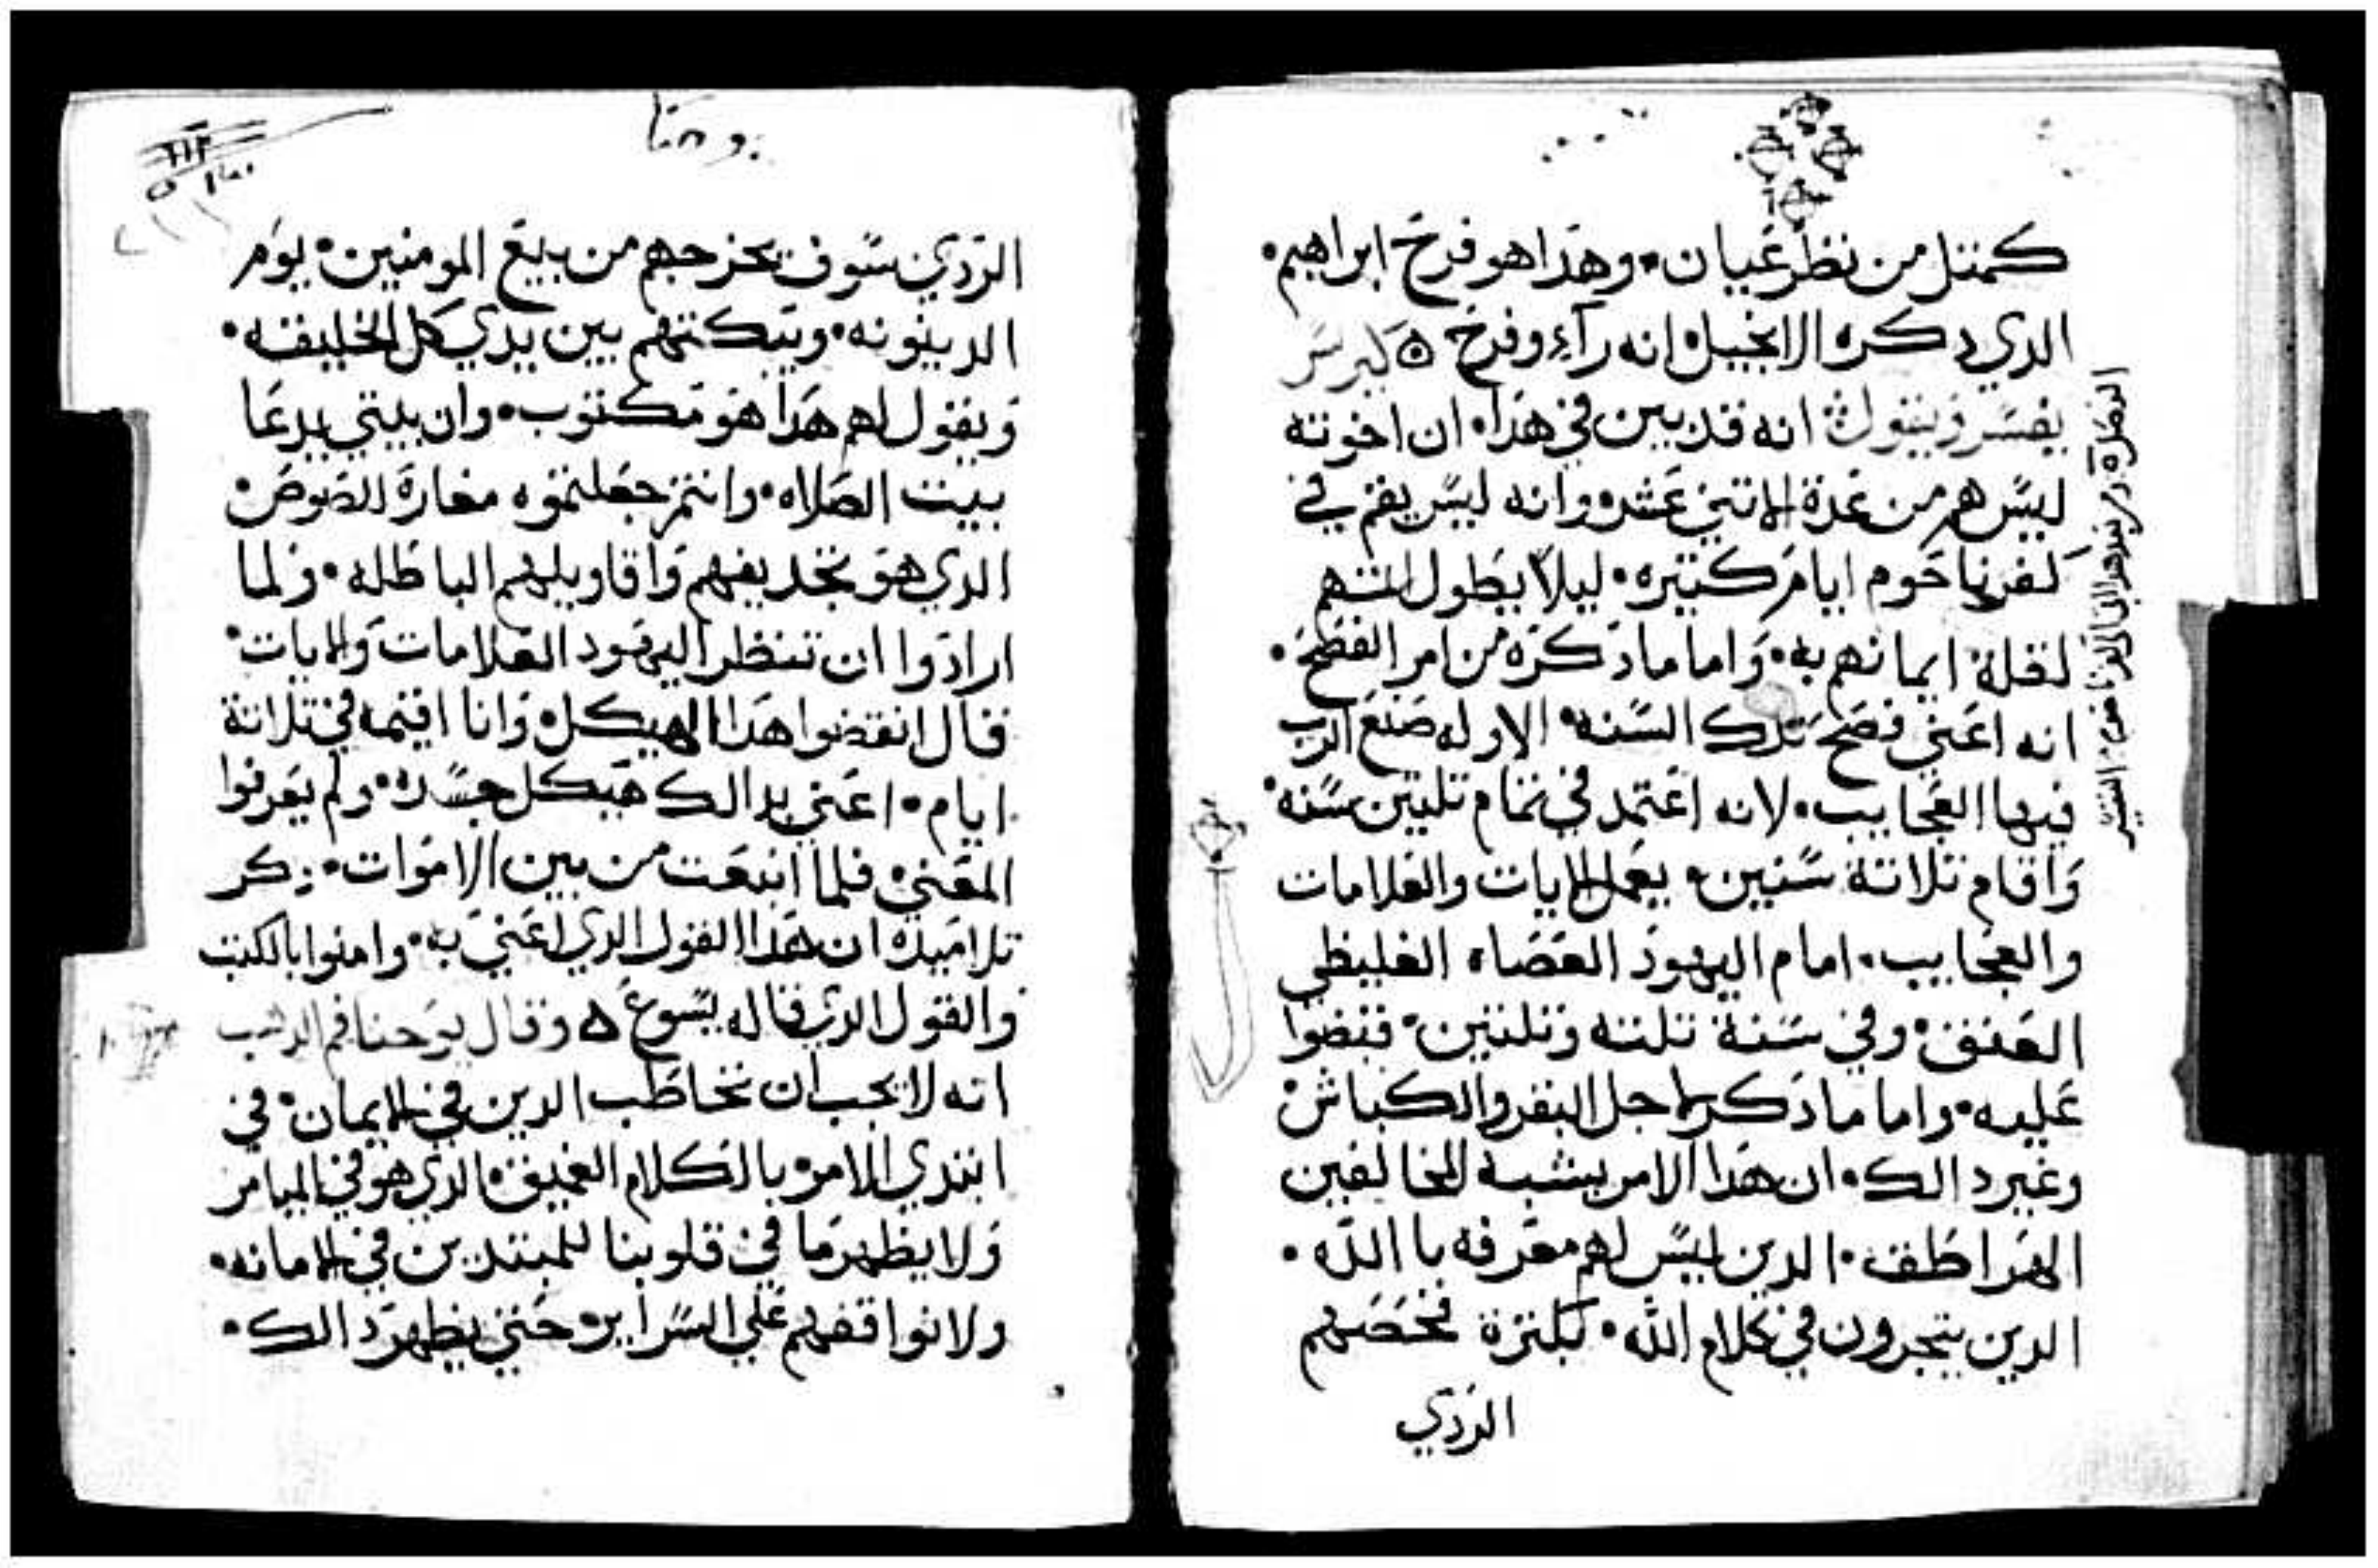 كمتل من نظر عيان • وهدا هو فرح ابراهيم •
الدي دكره الانجيل انه رآء وفرح ه كيرس
يفسر ويقول انه قد بين في هدا • ان اخوته
ليس هم من عدة الاتني عشر وانه ليس يقم في
كفرناحوم ايام كتيره • ليلا يطول لتهم
لقلة ايمانهم به • واما مادكره من امر الفصح •
انه اعني فصح تلك السنه الاوله صنع الرب
فيها العجايب • لانه اعتمد في تمام تليتين سنه
واقام تلاتة سنين • يعمل الايات والعلامات
والعجايب • امام اليهود العصاه الغليظي
العنق • وفي سنة تلته وتلتين قبضوا
عليه • واما مادكر لاجل البقر والكباش
وغير دالك • ان هدا الامر يشبه المخالفين
الهراطقه • الدين ليس لهم معرفه باالله •
الدين يتجرون في كلام الله • بكترة فحصهم
الردي
يوحنا
الردي سوف يخرجهم من بيع المومنين • يوم
الدينونه • ويبكتهم بين يدي كل الخليقه •
ويقول لهم هدا هو مكتوب • وان بيتي يدعا
بيت الصلاه • وانتم جعلتموه مغارة للصوص
الدي هو تجديفهم واقاويلهم الباطله • ولما
ارادوا ان تنظر اليهود العلامات والايات
قال انقضوا هدا الهيكل • وانا اقيمه في تلاتة
ايام • اعني بدالك هيكل جسده • ولم يعرفوا
المعني • فلما انبعت من بين الاموات • دكر
تلاميده ان هدا القول الدي اعني به • وامنوا بالكتب
والقول الدي قاله يسوع ه وقال يوحنا فم الدهب
انه لا يجب ان نخاطب الدين في الايمان • في
ابتدي الامر • بالكلام العميق • الدي هو في الميامر
ولا يظهر ما في قلوبنا للمبتدين في الامانه •
ولا نواقفهم علي السراير • حتي يظهر دالك •